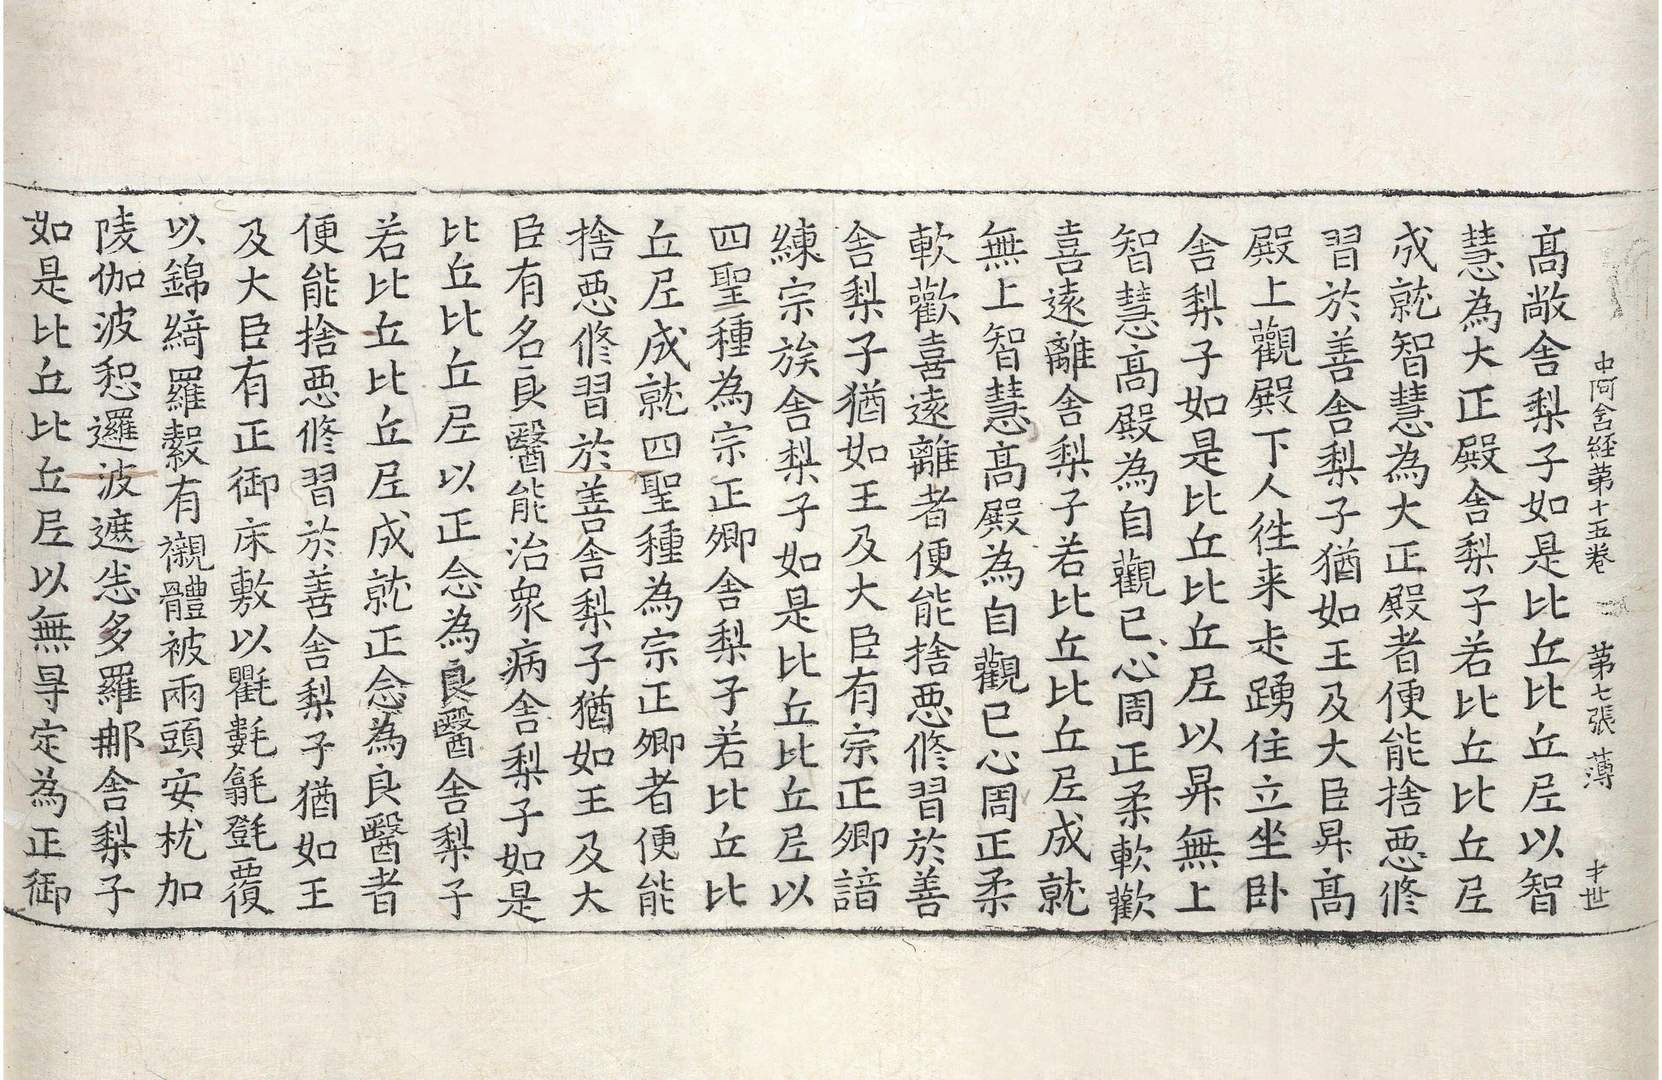 中阿含経苐十五巻　苐七張　薄　才世
髙敞舎梨子如是比丘比丘尼以智
慧為大正殿舎梨子若比丘比丘尼
成就智慧為大正殿者便能捨悪修
習於善舎梨子猶如王及大臣昇髙
殿上觀殿下人徃来走踴住立坐卧
舎梨子如是比丘比丘尼以昇無上
智慧髙殿為自觀已心周正柔軟歡
喜遠離舎梨子若比丘比丘尼成就
無上智慧髙殿為自觀已心周正柔
軟歡喜遠離者便能捨悪修習於善
舎梨子猶如王及大臣有宗正卿諳
練宗族舎梨子如是比丘比丘尼以
四聖種為宗正卿舎梨子若比丘比
丘尼成就四聖種為宗正卿者便能
捨悪修習於善舎梨子猶如王及大
臣有名良醫能治衆病舎梨子如是
比丘比丘尼以正念為良醫舎梨子
若比丘比丘尼成就正念為良醫者
便能捨悪修習於善舎梨子猶如王
及大臣有正御床敷以氍氀毹㲪覆
以錦綺羅縠有襯體被兩頭安枕加
陵伽波惒邏波遮悉多羅那舎梨子
如是比丘比丘尼以無㝵定為正御